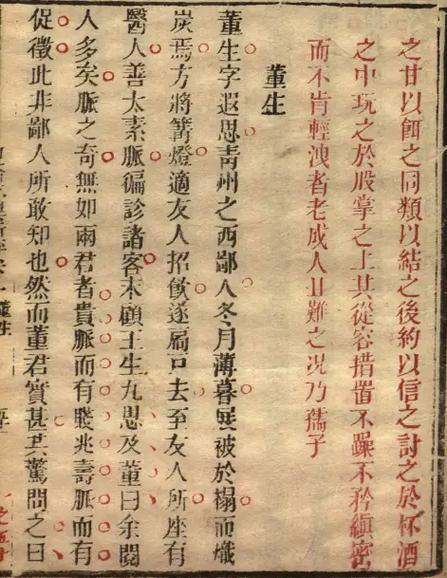 之甘以餌之同類以結之後約以信之討之於杯酒
之中玩之於股掌之上其從容措置不躁不矜縝密
而不肯輕洩者老成人且難之况乃孺子
董生
董生字遐思青州之西鄙人冬月薄暮展被於榻而熾
炭焉方將篝燈適友人招飲遂扃戸去至友人所座有
醫人善太素脈徧診諸客末顧王生九思及董曰余閱
人多矣脈之奇無如兩君者貴脈而有賤兆壽脈而有
促徵此非鄙人所敢知也然而董君實甚共驚問之曰
董生